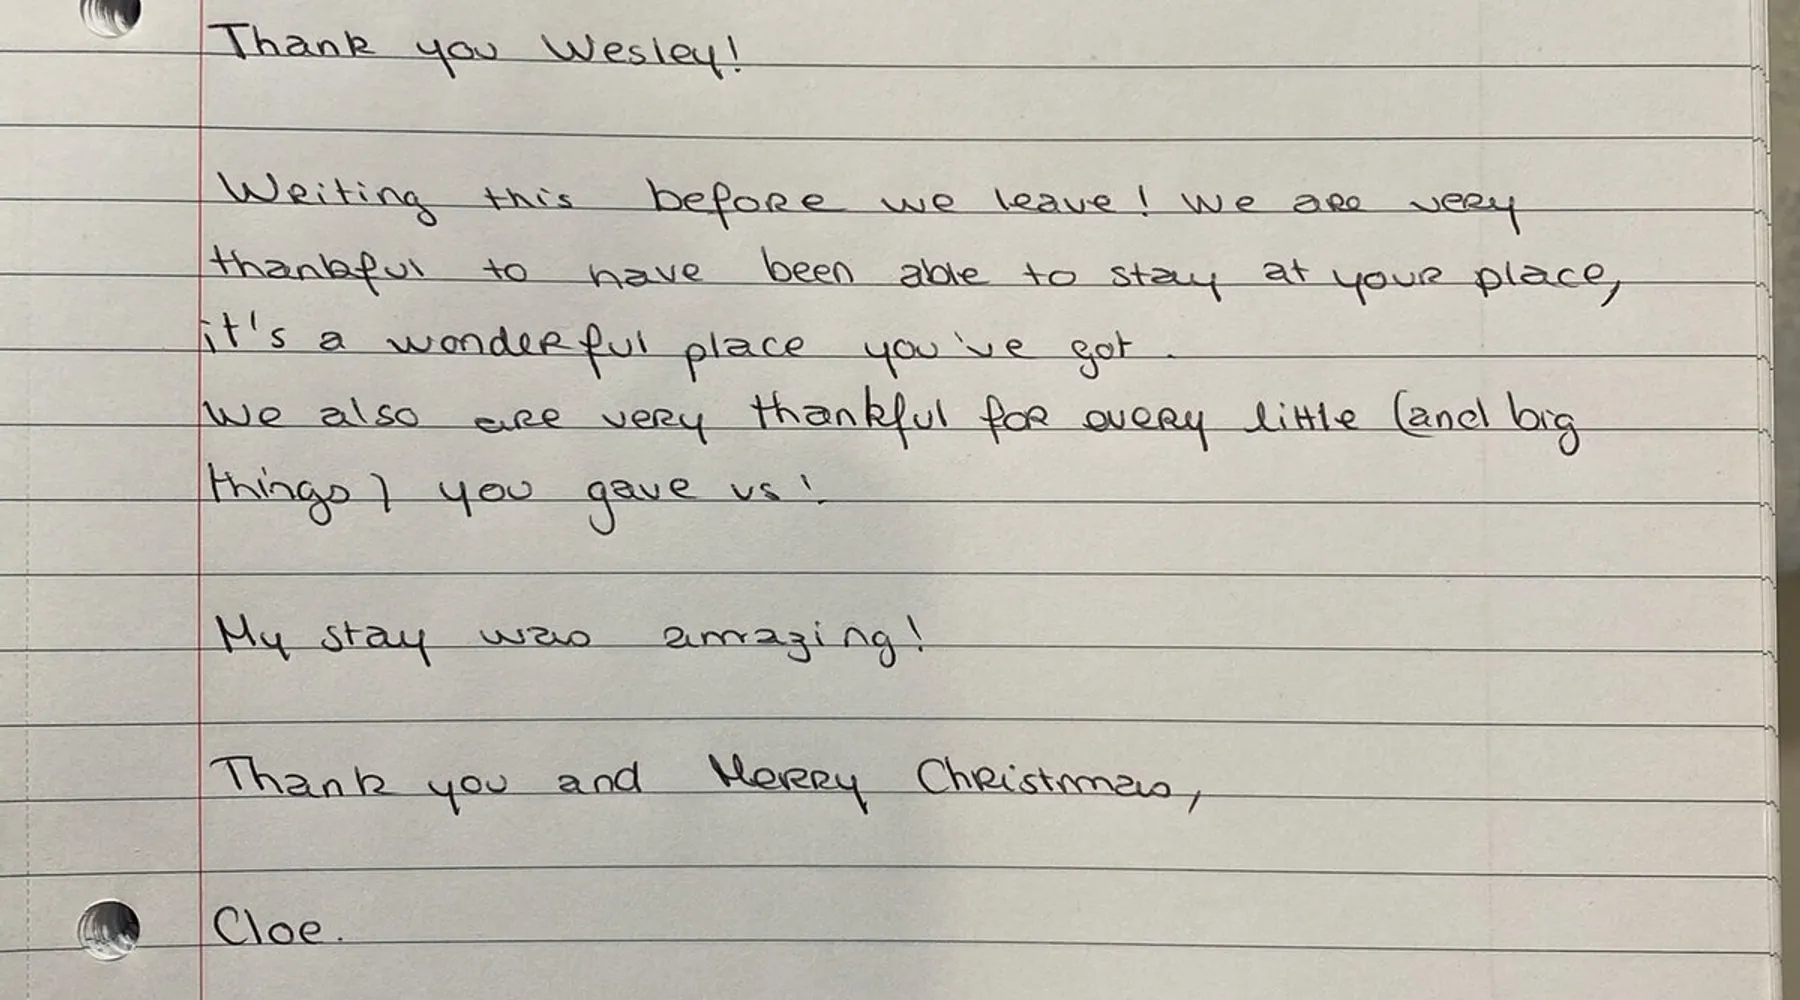 Thank you Wesley!
Writing this before we leave! We are very
thankful to have been able to stay at your place,
it's a wonderful place you've got.
We also are very thankful for every little (and big
things) you gave us!
My stay was amazing!
Thank you and Merry Christmas,
Cloe.